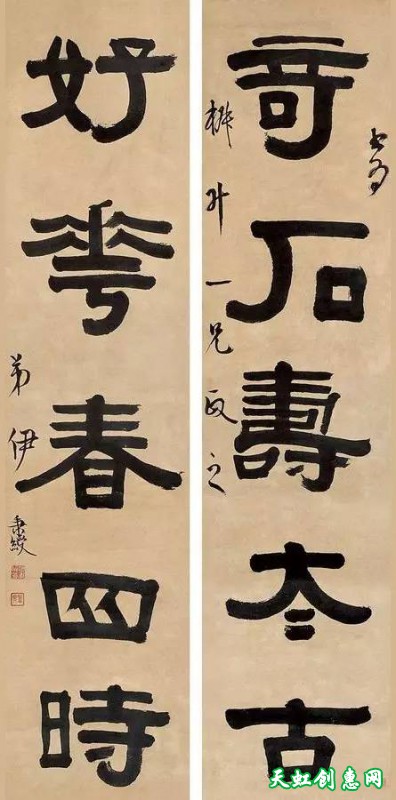 書為
奇石壽太古
升一兄政之
好華春四時
弟伊秉綬
天虹创惠网